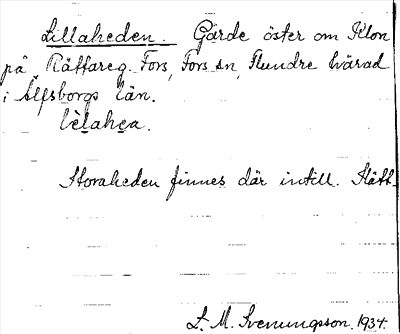 Lillaheden. Gärde öster om Klon
på Råffareg. Fors, Fors sn, Flundre härad
i Älfsborgs län.
Storaheden finnes där intill. Slätt.
L. M. Svenungsson. 1934.